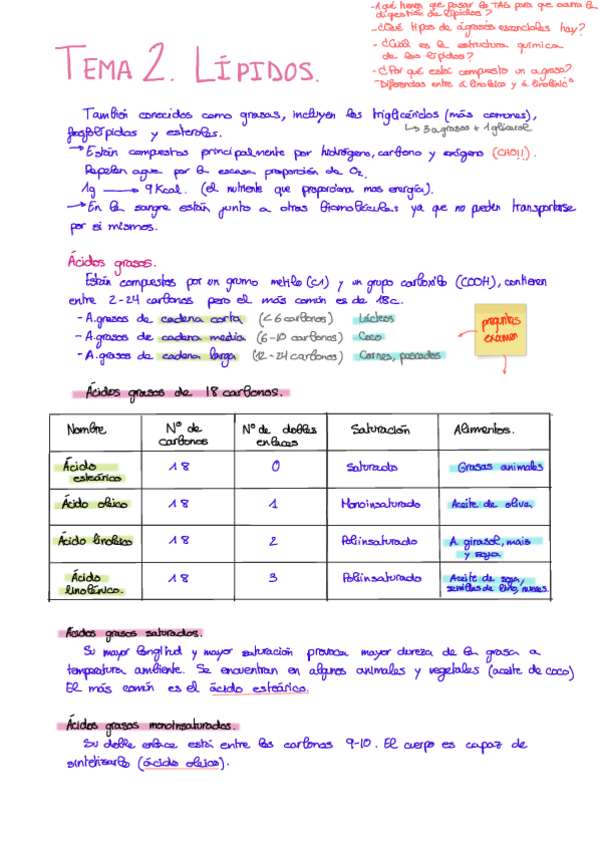 -A qué tienen que pasar los TAG para que ocurra la
digestión de lípidos?
- ¿Qué tipos de ágrasos esenciales hay?
- ¿Cuál es la estructura química
de los lípidos?
- ¿Por qué está compuesto un a.graso?
"Diferencias entre á linoleico y á. linolénic"
TEMA 2. LÍPIDOS.
También conocidos como grasas, incluyen los triglicéridos (más comunes),
fosfolípidos y esteroles.
↳ 3 agrasos + 1 glicerol
→ Están compuestas principalmente por hidrógeno, carbono y oxígeno (CHO!!).
Repelen agua por la escasa proporción de O₂.
1g → 9 Kcal. (el nutriente que proporciona mas energía).
→ En la sangre están junto a otras biomoléculas ya que no pueden transportarse
por si mismos.
Ácidos grasos.
Están compuestos por un grupo metilo (C1) y un grupo carboxilo (COOH), contienen
entre 2-24 carbonos pero el más común es de 18c.
- A.grasos de cadena corta (<6 carbonos) Lácteos
- A.grasos de cadena media (6-10 carbonos) Coco
- A.grasos de cadena larga (12-24 carbonos) Carnes, pescados
preguntas
examen
Ácidos grasos de 18 carbonos.
Nombre Nº de carbonos Nº de dobles enlaces Saturación Alimentos.
Ácido esteárico 18 0 Saturado Grasas animales
Ácido oleico 18 1 Monoinsaturado Aceite de oliva
Ácido linoleico 18 2 Poliinsaturado A. girasol, maís y soja
Ácido linolénico. 18 3 Poliinsaturado Aceite de soja, semillas de lino, nueces.
Ácidos grasos saturados.
Su mayor longitud y mayor saturación provoca mayor dureza de la grasa a
temperatura ambiente. Se encuentran en algunos animales y vegetales (aceite de coco)
El más común es el ácido esteárico.
Ácidos grasos monoinsaturados.
Su doble enlace está entre los carbonos 9-10. El cuerpo es capaz de
sintetizarlo (ácido oleico).